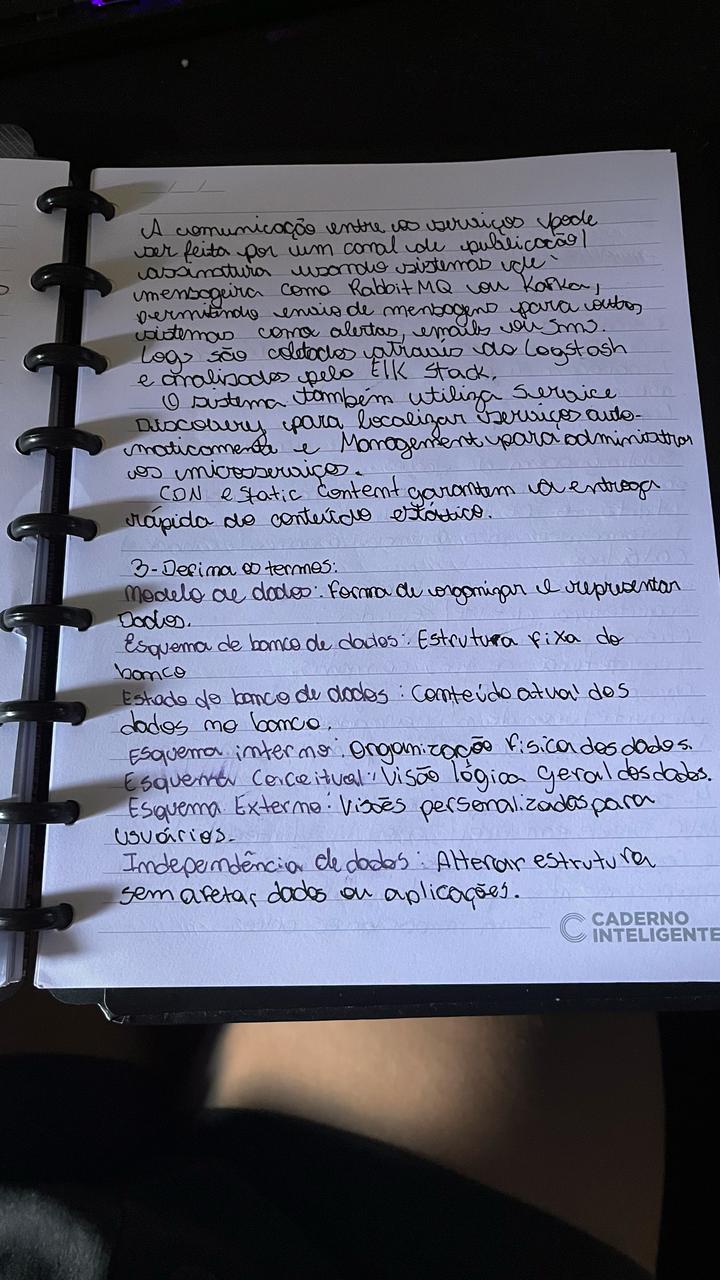 A comunicação entre os serviços pode
ser feita por um canal de publicação/
assinatura usando sistemas de
mensageira como RabbitMQ ou Kafka,
permitindo envio de mensagens para outros
sistemas como alertas, emails ou sms.
Logs são coletados através do Logstash
e analisados pelo Elk Stack.
O sistema também utiliza Service
Discovery para localizar serviços auto-
maticamente e Management para administrar
os microserviços.
CDN e static Content garantem a entrega
rápida do conteúdo estático.
3-Defina os termos:
Modelo de dados: Forma de organizar e representar
Dados.
Esquema de banco de dados: Estrutura fixa do
banco
Estado do banco de dados: Conteúdo atual dos
dados no banco.
Esquema interno: Organização física dos dados.
Esquema Conceitual: Visão lógica geral dos dados.
Esquema Externo: Visões personalizadas para
usuários.
Independência de dados: Alterar estrutura
sem afetar dados ou aplicações.
CADERNO
INTELIGENTE